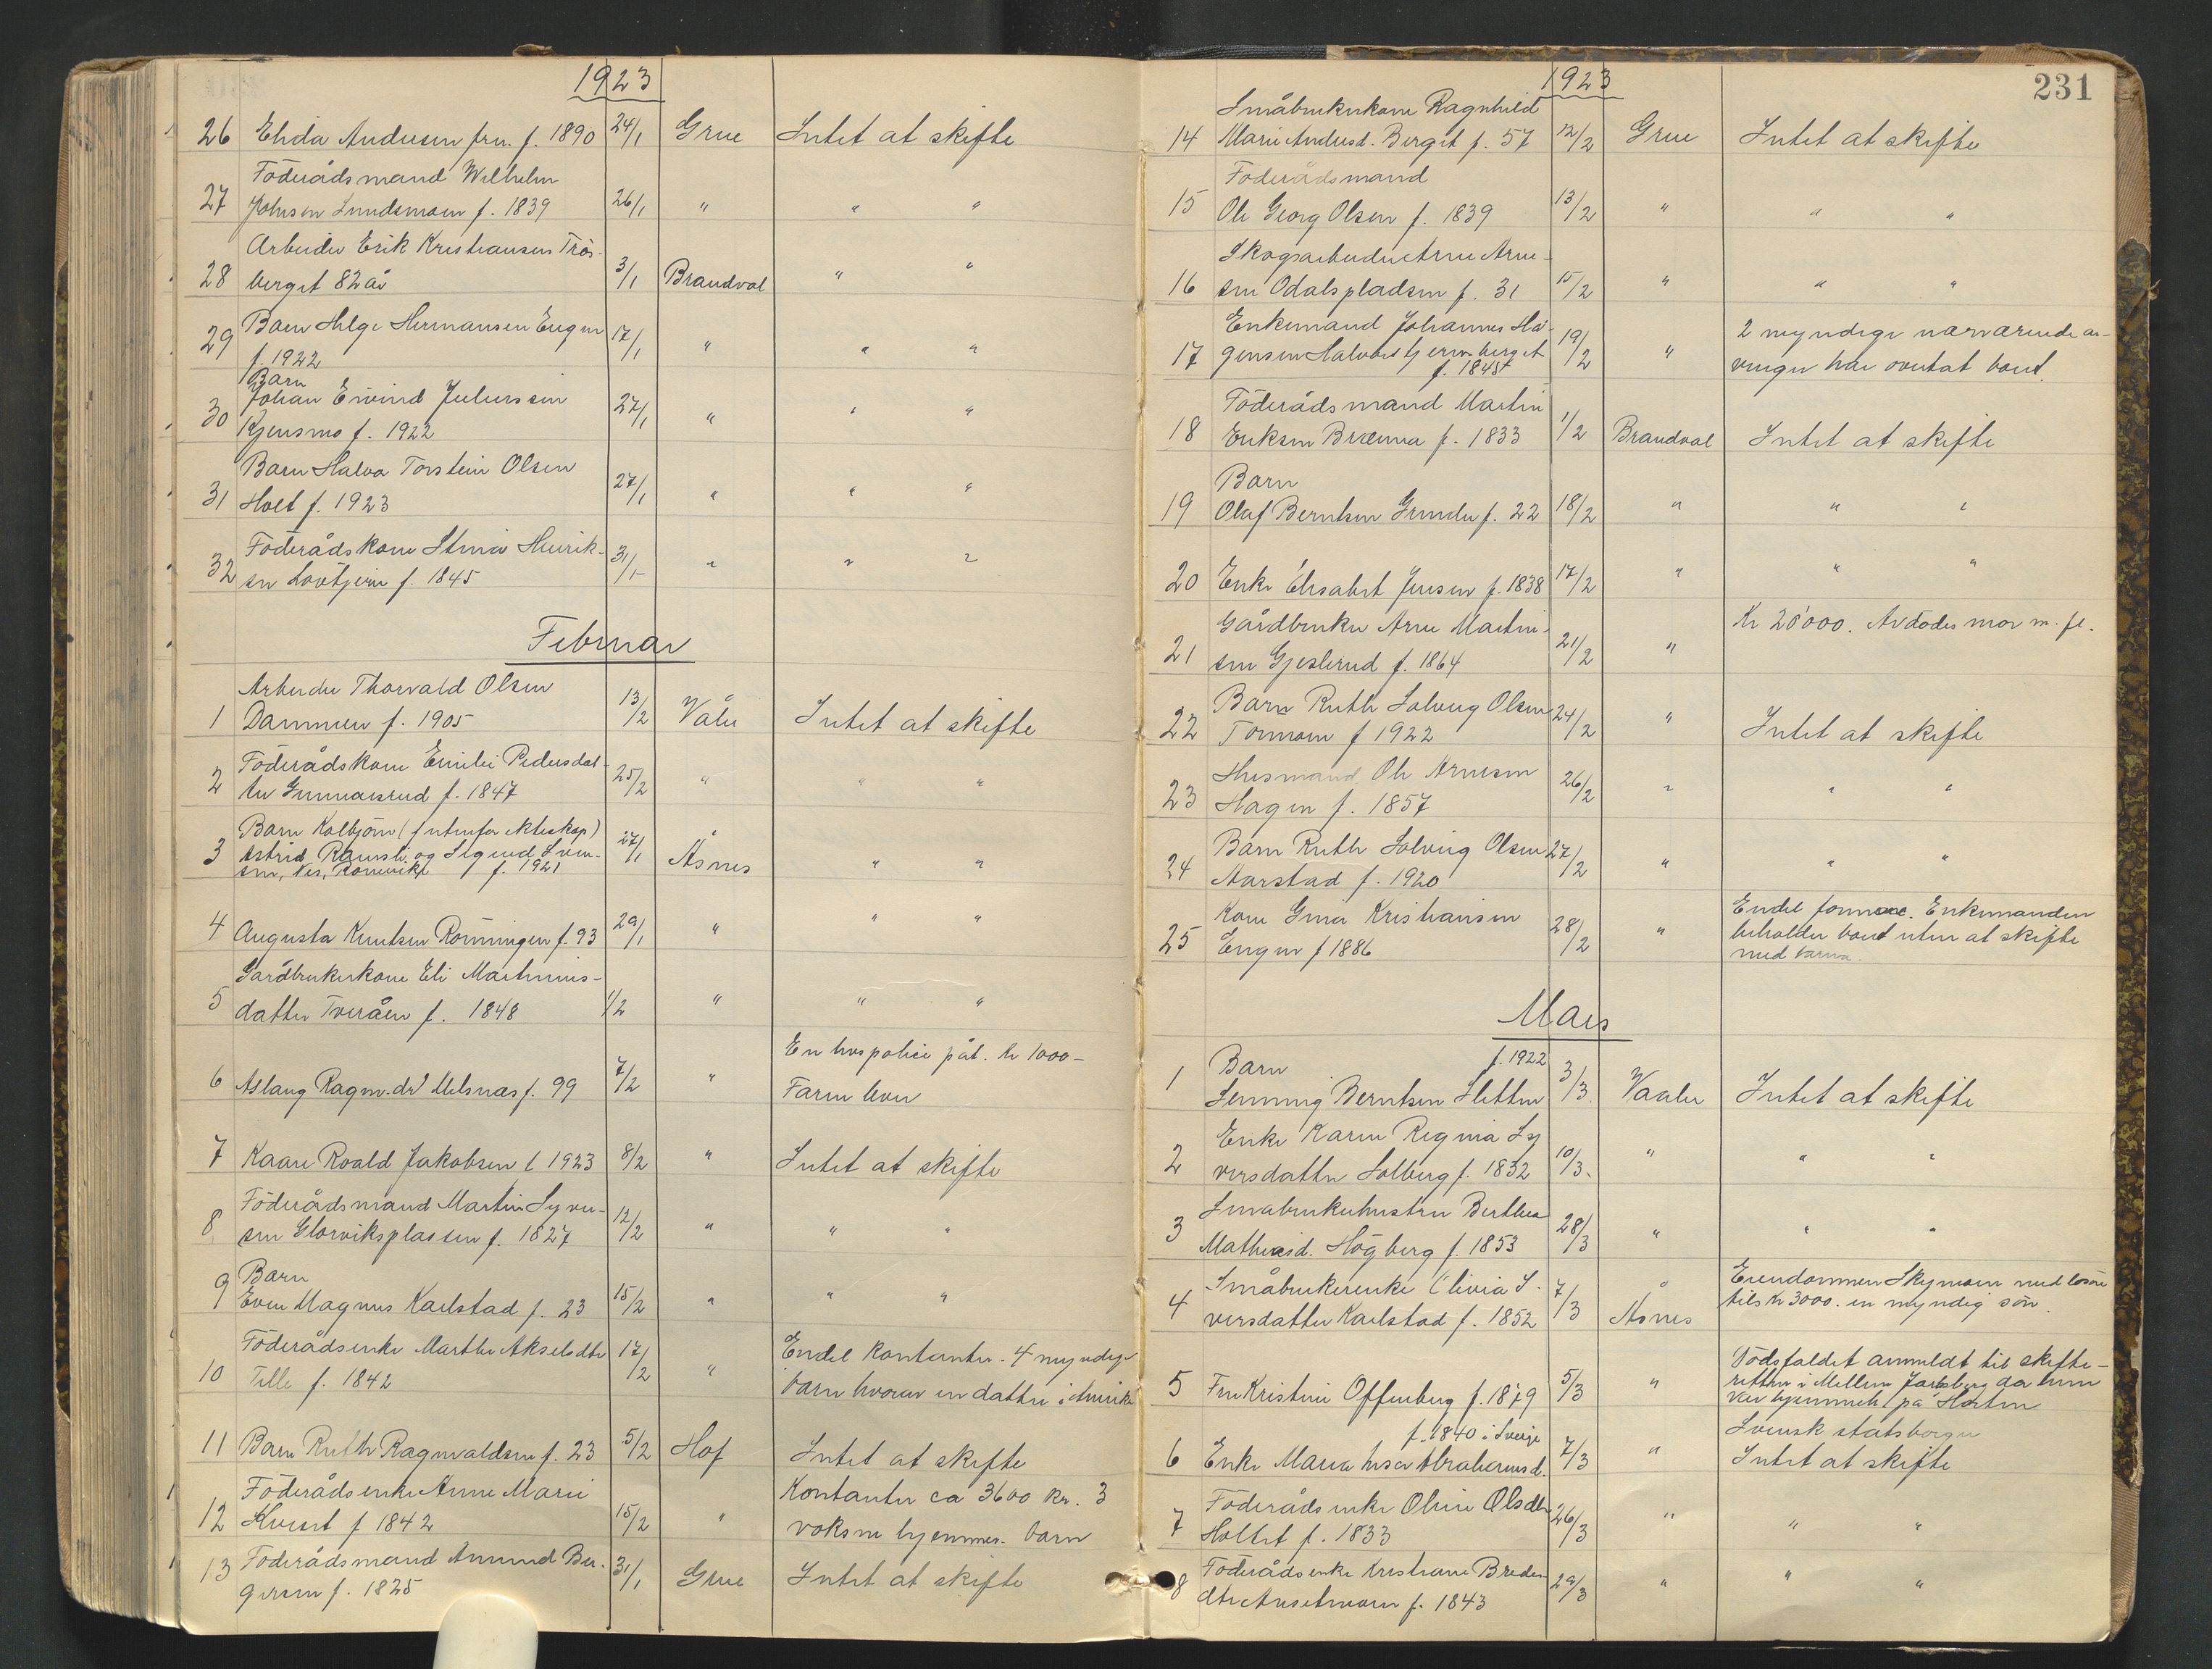 1923
26 Elida Andersen fru. f. 1890 24/1 Grue Intet at skifte
Föderådsmand Wilhelm
27 Johnsen Lundsmoen f. 1839 26/1 " " "
Arbeider Erik Kristiansen Trös-
28 berget 82 år 3/1 Brandval " "
29 Barn Helge Hermansen Engen 17/1 " " "
f. 1922
Barn
Johan Eivind Juliussen
30 Kjensmo f. 1922 27/1 " " "
Barn Halva Torstein Olsen
31 Holt f. 1923 27/1 " " "
Föderådskone Stina Henrik-
32 sen Lövtjern f. 1845 31/1 " " "
Februar
Arbeider Thorvald Olsen
1 Dammen f. 1905 13/2 Våler Intet at skifte
Föderådskone Emilie Pedersdat-
2 ter Gunnarsrud f. 1847 25/2 " " "
Barn Kolbjörn (f utenfor ekteskap)
3 Astrid og Sigurd Sven- 27/1 Åsnes " "
sen, f. 1921
4 Augusta Knutsen Rönningen f. 93 29/1 " " "
Gårdbrukerkone Eli Martinius-
5 datter Tveråen f. 1848 1/2 " " "
En livspolice pål. kr 1000-
6 Aslaug Ragnv.dr Melsnæs f. 99 7/2 " Faren lever
7 Kaare Roald Jakobsen f 1923 8/2 " Intet at skifte
Föderådsmand Martin Syver-
8 sen Glorviksplassen f. 1827 12/2 " " "
Barn
9 Even Magnus Karlstad f. 23 15/2 " " "
Föderådsenke Marthe Akselsdtr 17/2 Endel kontanter. 4 myndige
10 Tille f. 1842 " barn hvorav en datter i Amerika
11 Barn Ruth Ragnvaldsen f. 23 5/2 Hof Intet at skifte
Föderådsenke Anne Marie Kontanter ca 3600 kr. 3
12 Kvesst f 1842 15/2 " voksne hjemmev. barn
13 Föderådsmand Amund Ber- 31/1 Grue Intet at skifte
gersen f. 1825
1923 231
Småbrukerkone Ragnhild
14 Marie Andersd. Berget f. 57 12/2 Grue Intet at skifte
Föderådsmand
15 Ole Georg Olsen f. 1839 13/2 " " "
Skogsarbeider Arne Arne-
16 sen Odalspladsen f. 31 15/2 " " "
Enkemand Johannes Hå- 2 myndige nærværende ar-
17 gensen Halvorstjernberget 19/2 " vinger har overtat boet.
f. 1845
Föderådsmand Martin
18 Eriksen Brænna f. 1833 1/2 Brandval Intet at skifte
Barn
19 Olaf Berntsen Grinder f. 22 18/2 " " "
20 Enke Elisabet Jensen f. 1838 17/2 " " "
Gårdbruker Arne Martin- Kr 20'000. Avdödes mor m. fl.
21 sen Gjeslerud f. 1864 21/2 "
Barn Ruth Solveig Olsen
22 Tormoen f 1922 24/2 " Intet at skifte
Husmand Ole Arnesen
23 Hagen f. 1857 26/2 " " "
Barn Ruth Solveig Olsen
24 Aarstad f. 1920 27/2 " " "
Kone Gina Kristiansen Endel formue. Enkemanden
25 Engen f 1886 28/2 " beholder boet uten at skifte
med barna.
Mars
Barn f. 1922
1 Henning Berntsen Sletten 3/3 Vaaler Intet at skifte
Enke Karen Regina Sy
2 versdatter Solberg f. 1832 10/3. " " "
Småbrukerhustru Berthea
3 Matheasd. Högberg f. 1853 28/3 " " "
Småbrukerenke Olivia S. Eiendommen Skymoen med lösöre
4 versdatter Karlstad f. 1852 7/3 Åsnes tils kr 3000. en myndig sön.
Dödsfaldet anmeldt til skifte-
5 Fru Kristine Offenberg f. 1879 5/3 " retten i Mellem Jarlsberg da hun
var hjemmeh. på Horten
f. 1840 i Sverige Svensk statsborger
6 Enke Maria Lisa Abrahamsd. 7/3 " Intet at skifte
Föderådsenke Oline Olsdtr
7 Holtet f. 1833 26/3 " " "
Föderådsenke Kristiane Breder
8 dtr Ansetmoen f. 1843 29/3 " " "